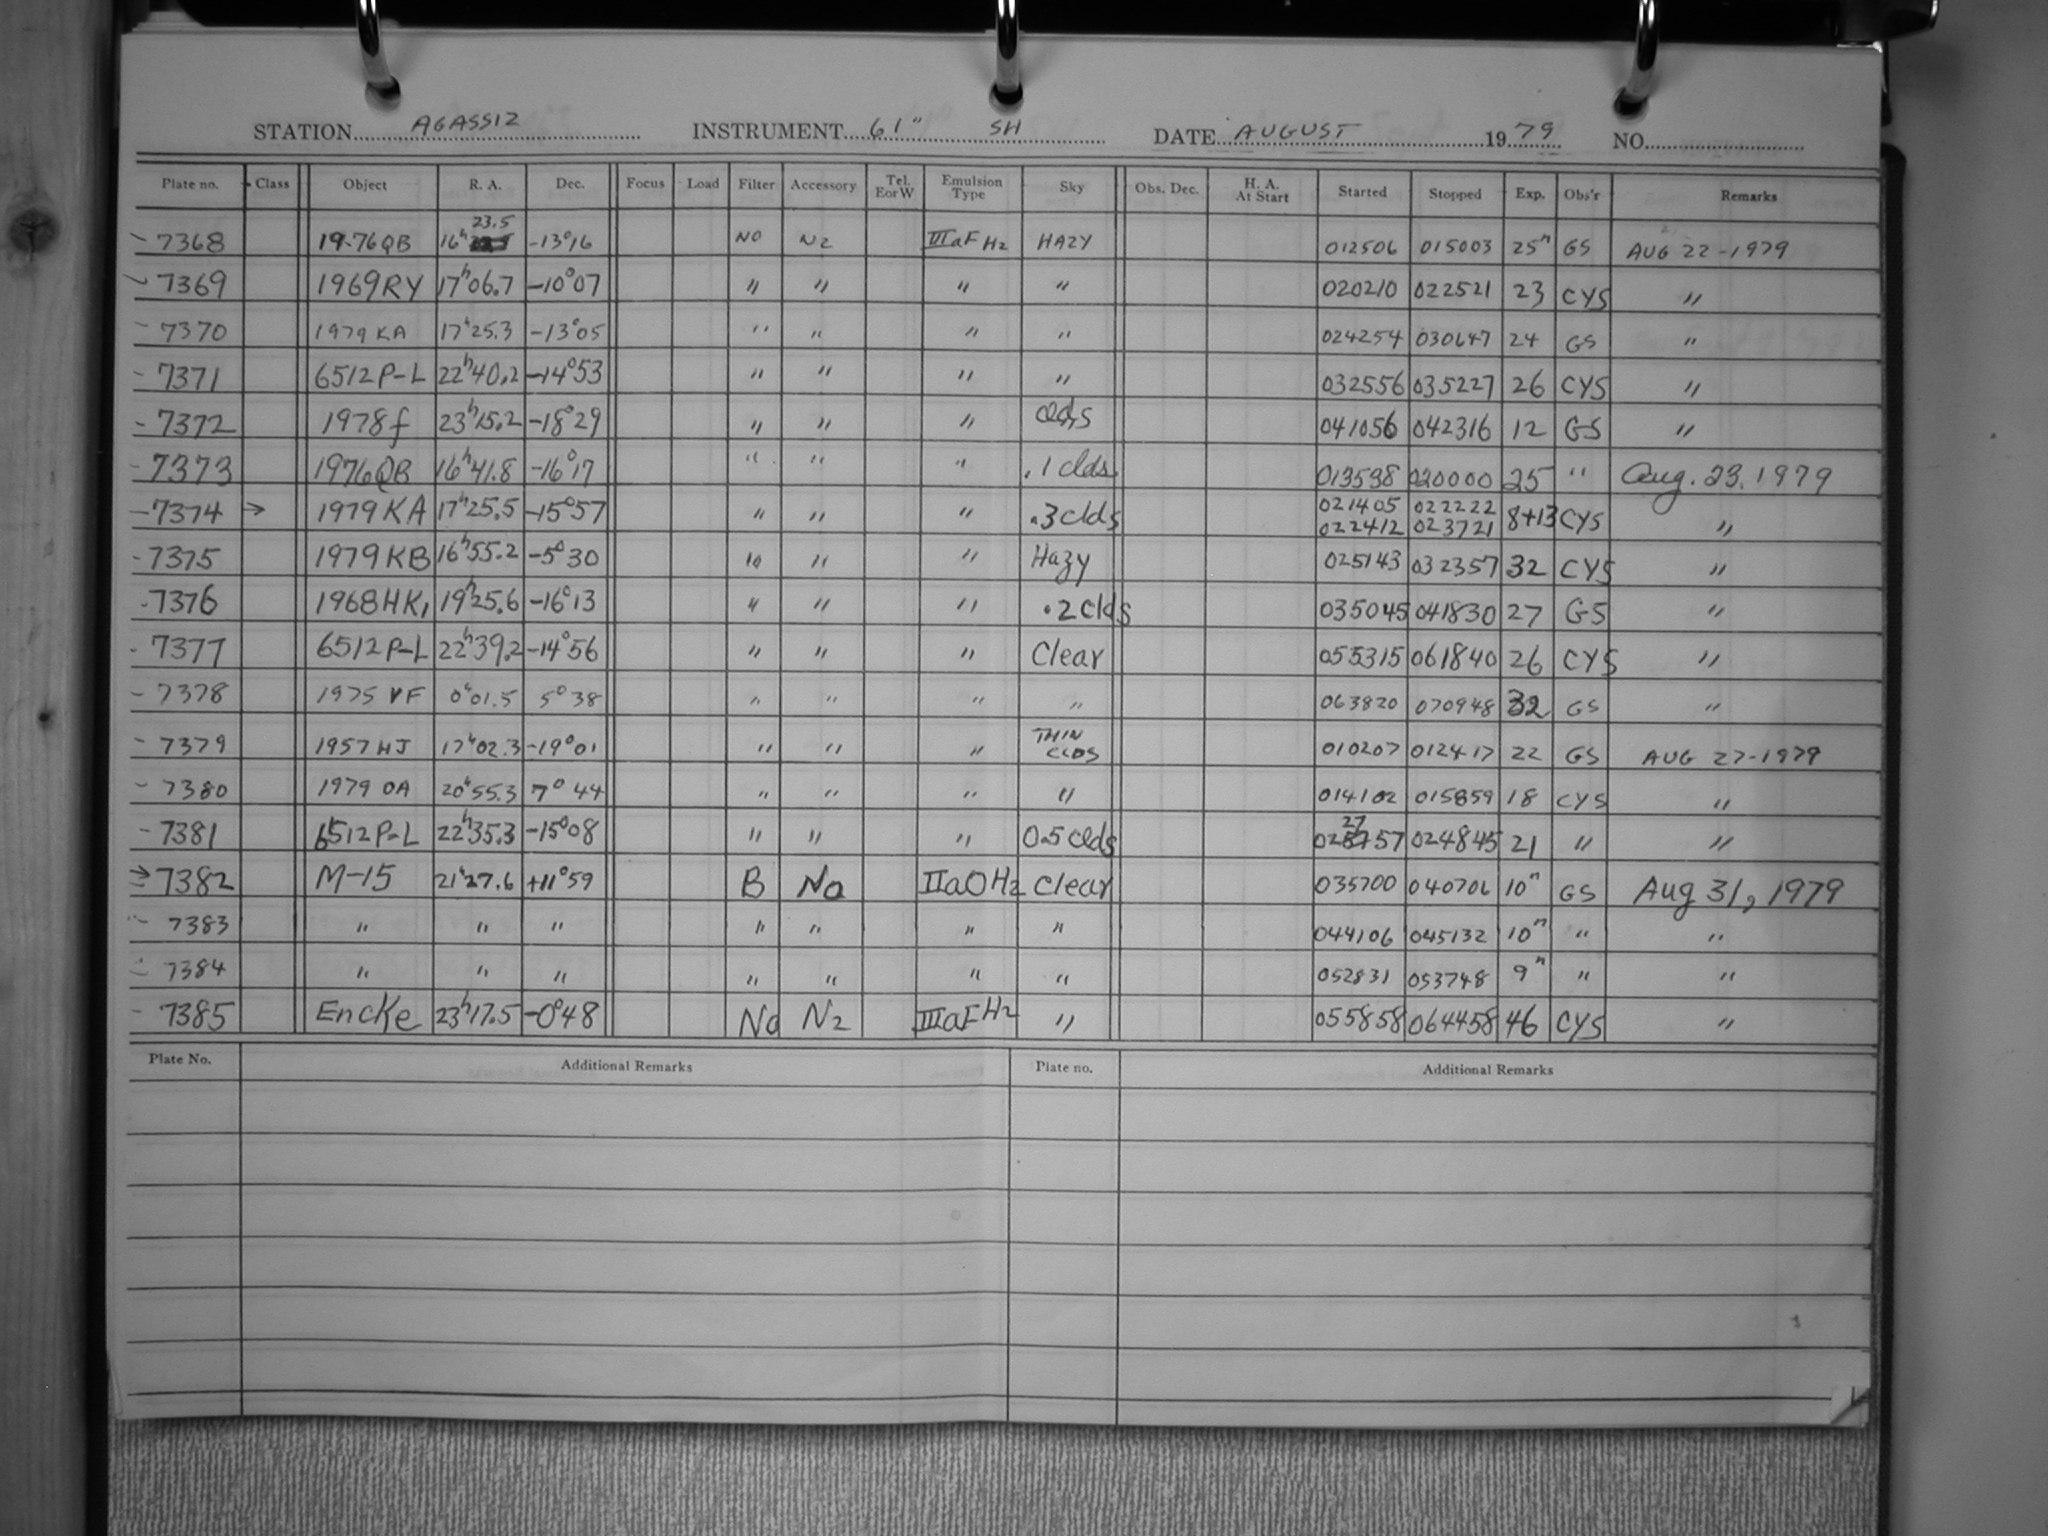 STATION AGASSIZ INSTRUMENT 61" SH DATE AUGUST 1979 NO.
Plate no. Class Object R. A. Dec. Focus Load Filter Accessory Tel. E or W Emulsion Type Sky Obs. Dec. H. A. At Start Started Stopped Exp. Obs'r Remarks
7368 1976QB 16h 23.5 -13°16 NO N2 IIIaF H2 HAZY 012506 015003 25m GS AUG 22-1979
7369 1969RY 17h06.7 -10°07 " " " " 020210 022521 23 CYS "
7370 1979 KA 17h25.3 -13°05 " " " " 024254 030647 24 GS "
7371 6512P-L 22h40.2 -14°53 " " " " 032556 035227 26 CYS "
7372 1978f 23h15.2 -18°29 " " " clds 041056 042316 12 GS "
7373 1976QB 16h41.8 -16°17 " " " .1 clds 013538 020000 25 " Aug. 23, 1979
7374 → 1979KA 17h25.5 -15°57 " " " .3 clds 021405 022222 8+13 CYS "
022412 023721
7375 1979KB 16h55.2 -5°30 " " " Hazy 025143 032357 32 CYS "
7376 1968HK1 19h25.6 -16°13 " " " .2 clds 035045 041830 27 GS "
7377 6512P-L 22h39.2 -14°56 " " " Clear 055315 061840 26 CYS "
7378 1975 VF 0h01.5 5°38 " " " " 063820 070948 32 GS "
7379 1957 HJ 17h02.3 -19°01 " " " THIN CLDS 010207 012417 22 GS AUG 27-1979
7380 1979 OA 20h55.3 7°44 " " " " 014102 015859 18 CYS "
7381 6512P-L 22h35.3 -15°08 " " " 0.5 clds 022757 024845 21 " "
→ 7382 M-15 21h27.6 +11°59 B No IIaO H2 Clear 035700 040706 10m GS Aug 31, 1979
7383 " " " " " " " 044106 045132 10m " "
7384 " " " " " " " 052831 053748 9m " "
7385 Encke 23h17.5 -0°48 No N2 IIIaF H2 " 055858 064458 46 CYS "
Plate No. Additional Remarks Plate no. Additional Remarks